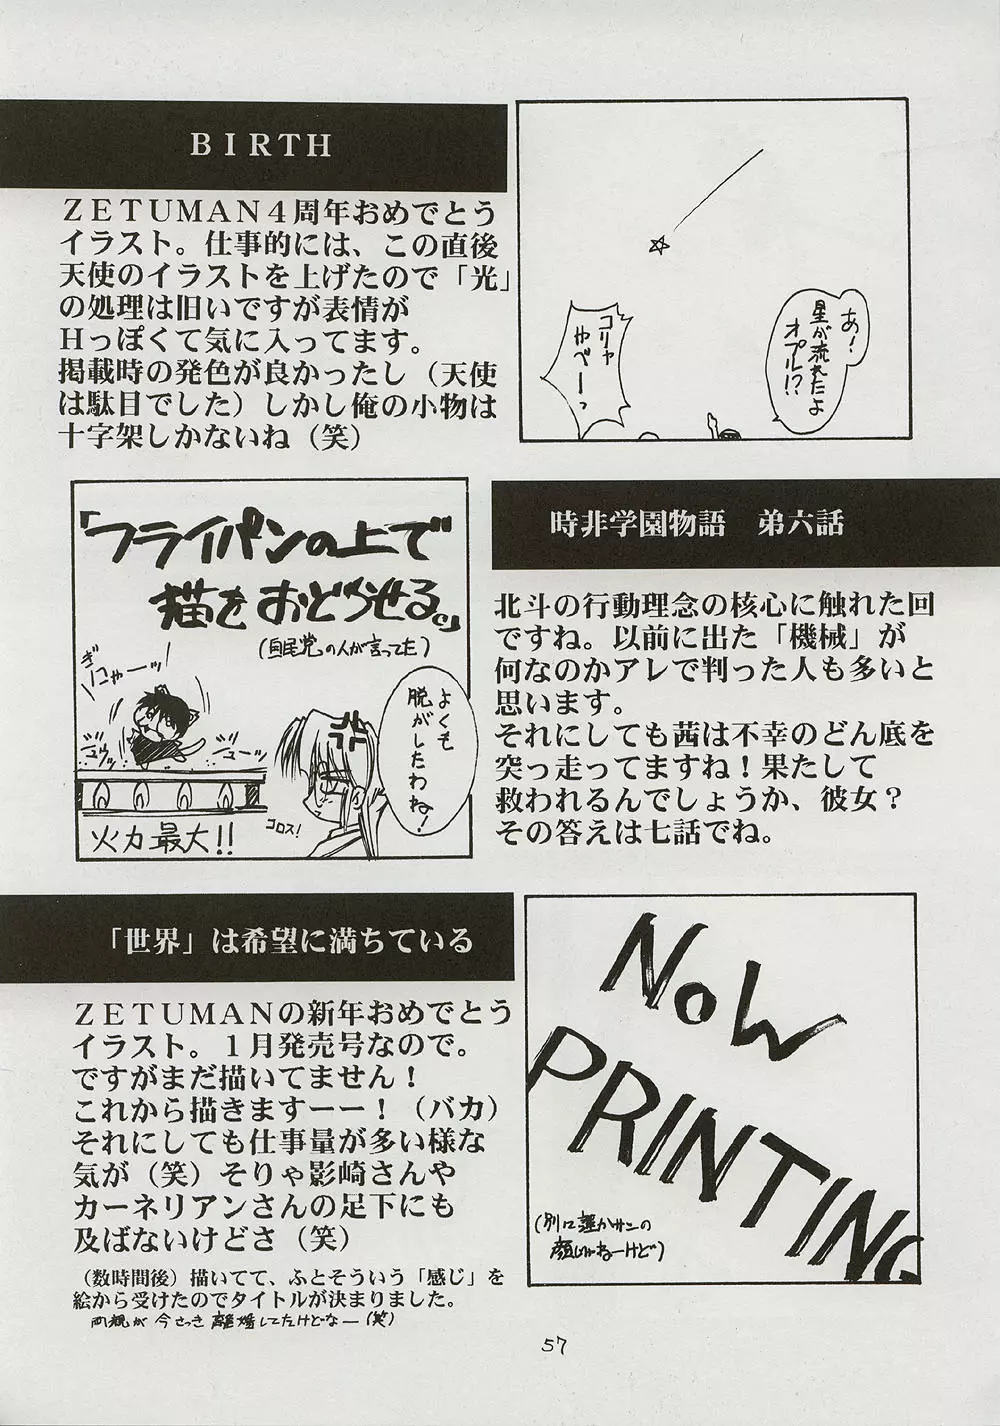 BIRTH
ZETUMAN4周年おめでとう
イラスト。仕事的には、この直後
天使のイラストを上げたので「光」
の処理は旧いですが表情が
Hっぽくて気に入ってます。
掲載時の発色が良かったし（天使
は駄目でした）しかし俺の小物は
十字架しかないね（笑）
あ！
星が流れたよ
オプル!?
コリャ
やべーっ
「フライパンの上で
猫をおどらせる。」
（自民党の人が言ってた）
ギニャーッ！
ジュウゥ
ジューッ
よくも
脱がしたわね！
コロス！
火力最大！！
時非学園物語　弟六話
北斗の行動理念の核心に触れた回
ですね。以前に出た「機械」が
何なのかアレで判った人も多いと
思います。
それにしても茜は不幸のどん底を
突っ走ってますね！果たして
救われるんでしょうか、彼女？
その答えは七話でね。
「世界」は希望に満ちている
ZETUMANの新年おめでとう
イラスト。１月発売号なので。
ですがまだ描いてません！
これから描きますーー！（バカ）
それにしても仕事量が多い様な
気が（笑）そりゃ影崎さんや
カーネリアンさんの足下にも
及ばないけどさ（笑）
（数時間後）描いてて、ふとそういう「感じ」を
絵から受けたのでタイトルが決まりました。
両親が今さっき離婚してたけどなー（笑）
NOW
PRINTING
（別に蓮かサンの
顔じゃねーけど）
57